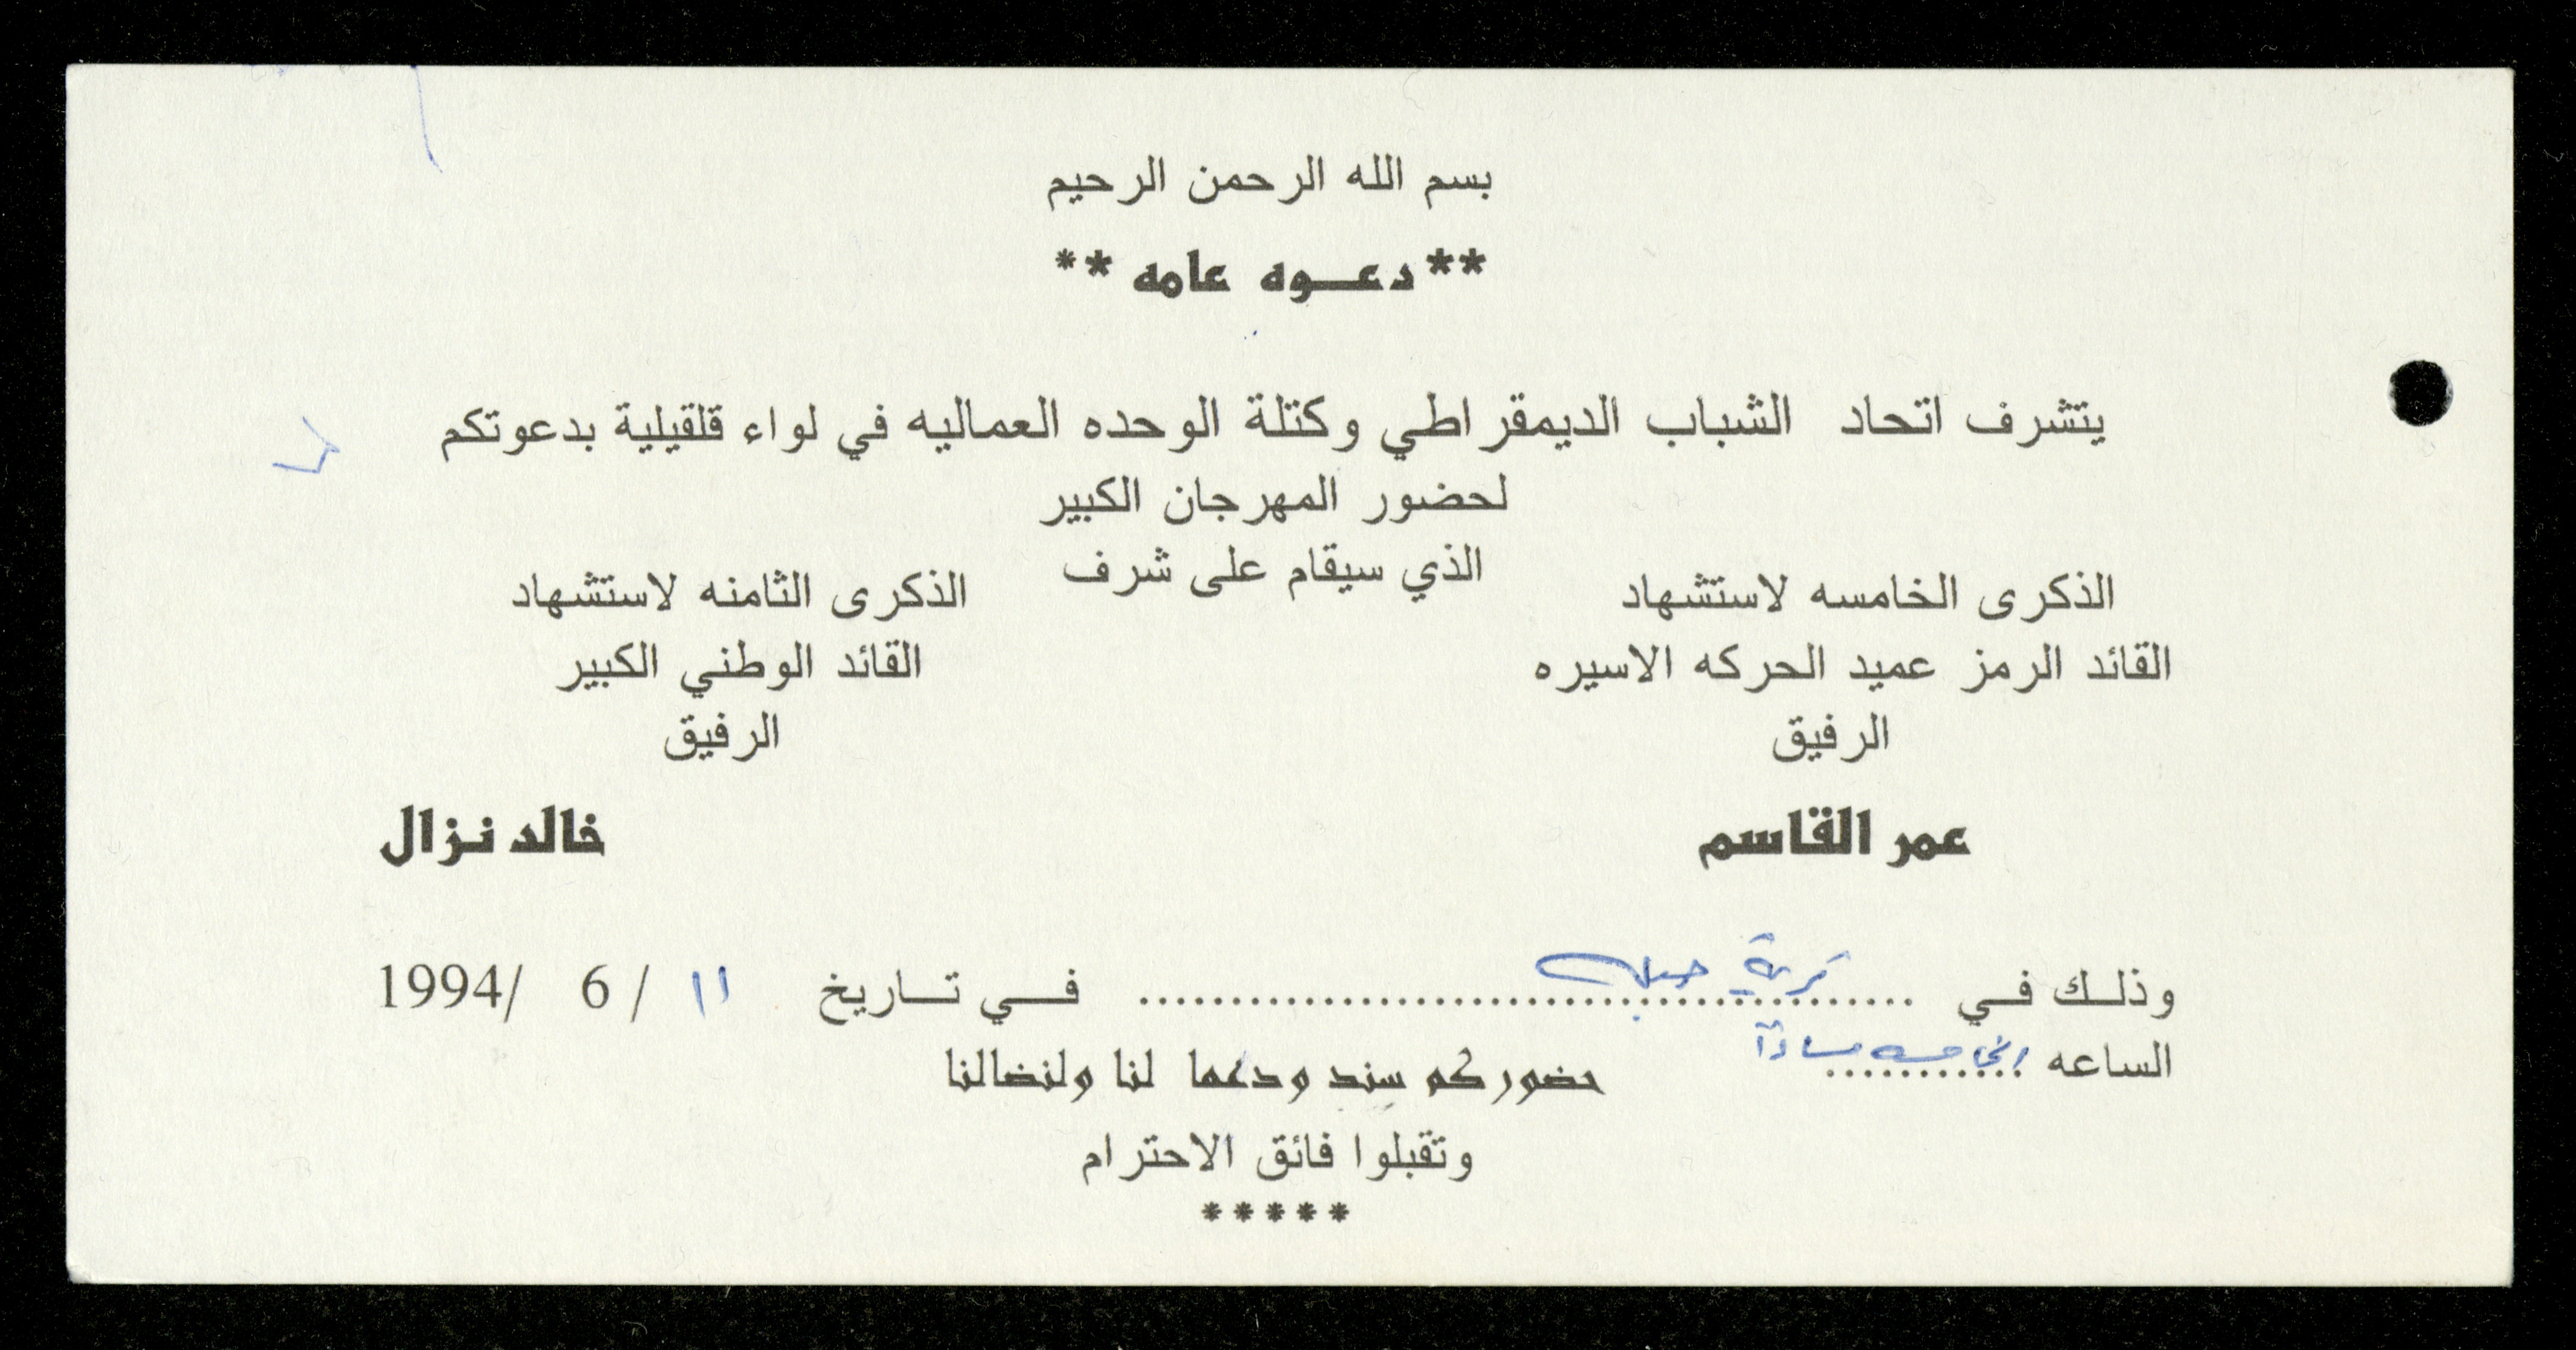 بسم الله الرحمن الرحيم
** دعوه عامه **
يتشرف اتحاد الشباب الديمقراطي وكتلة الوحده العماليه في لواء قلقيلية بدعوتكم
لحضور المهرجان الكبير
الذي سيقام على شرف
الذكرى الخامسه لاستشهاد
القائد الرمز عميد الحركه الاسيره
الرفيق
عمر القاسم
الذكرى الثامنه لاستشهاد
القائد الوطني الكبير
الرفيق
خالد نزال
وذلك في قرية ........ في تاريخ ١١ / 6 /1994
الساعه الخامسه مساءً
حضوركم سند ودعما لنا ولنضالنا
وتقبلوا فائق الاحترام
*****